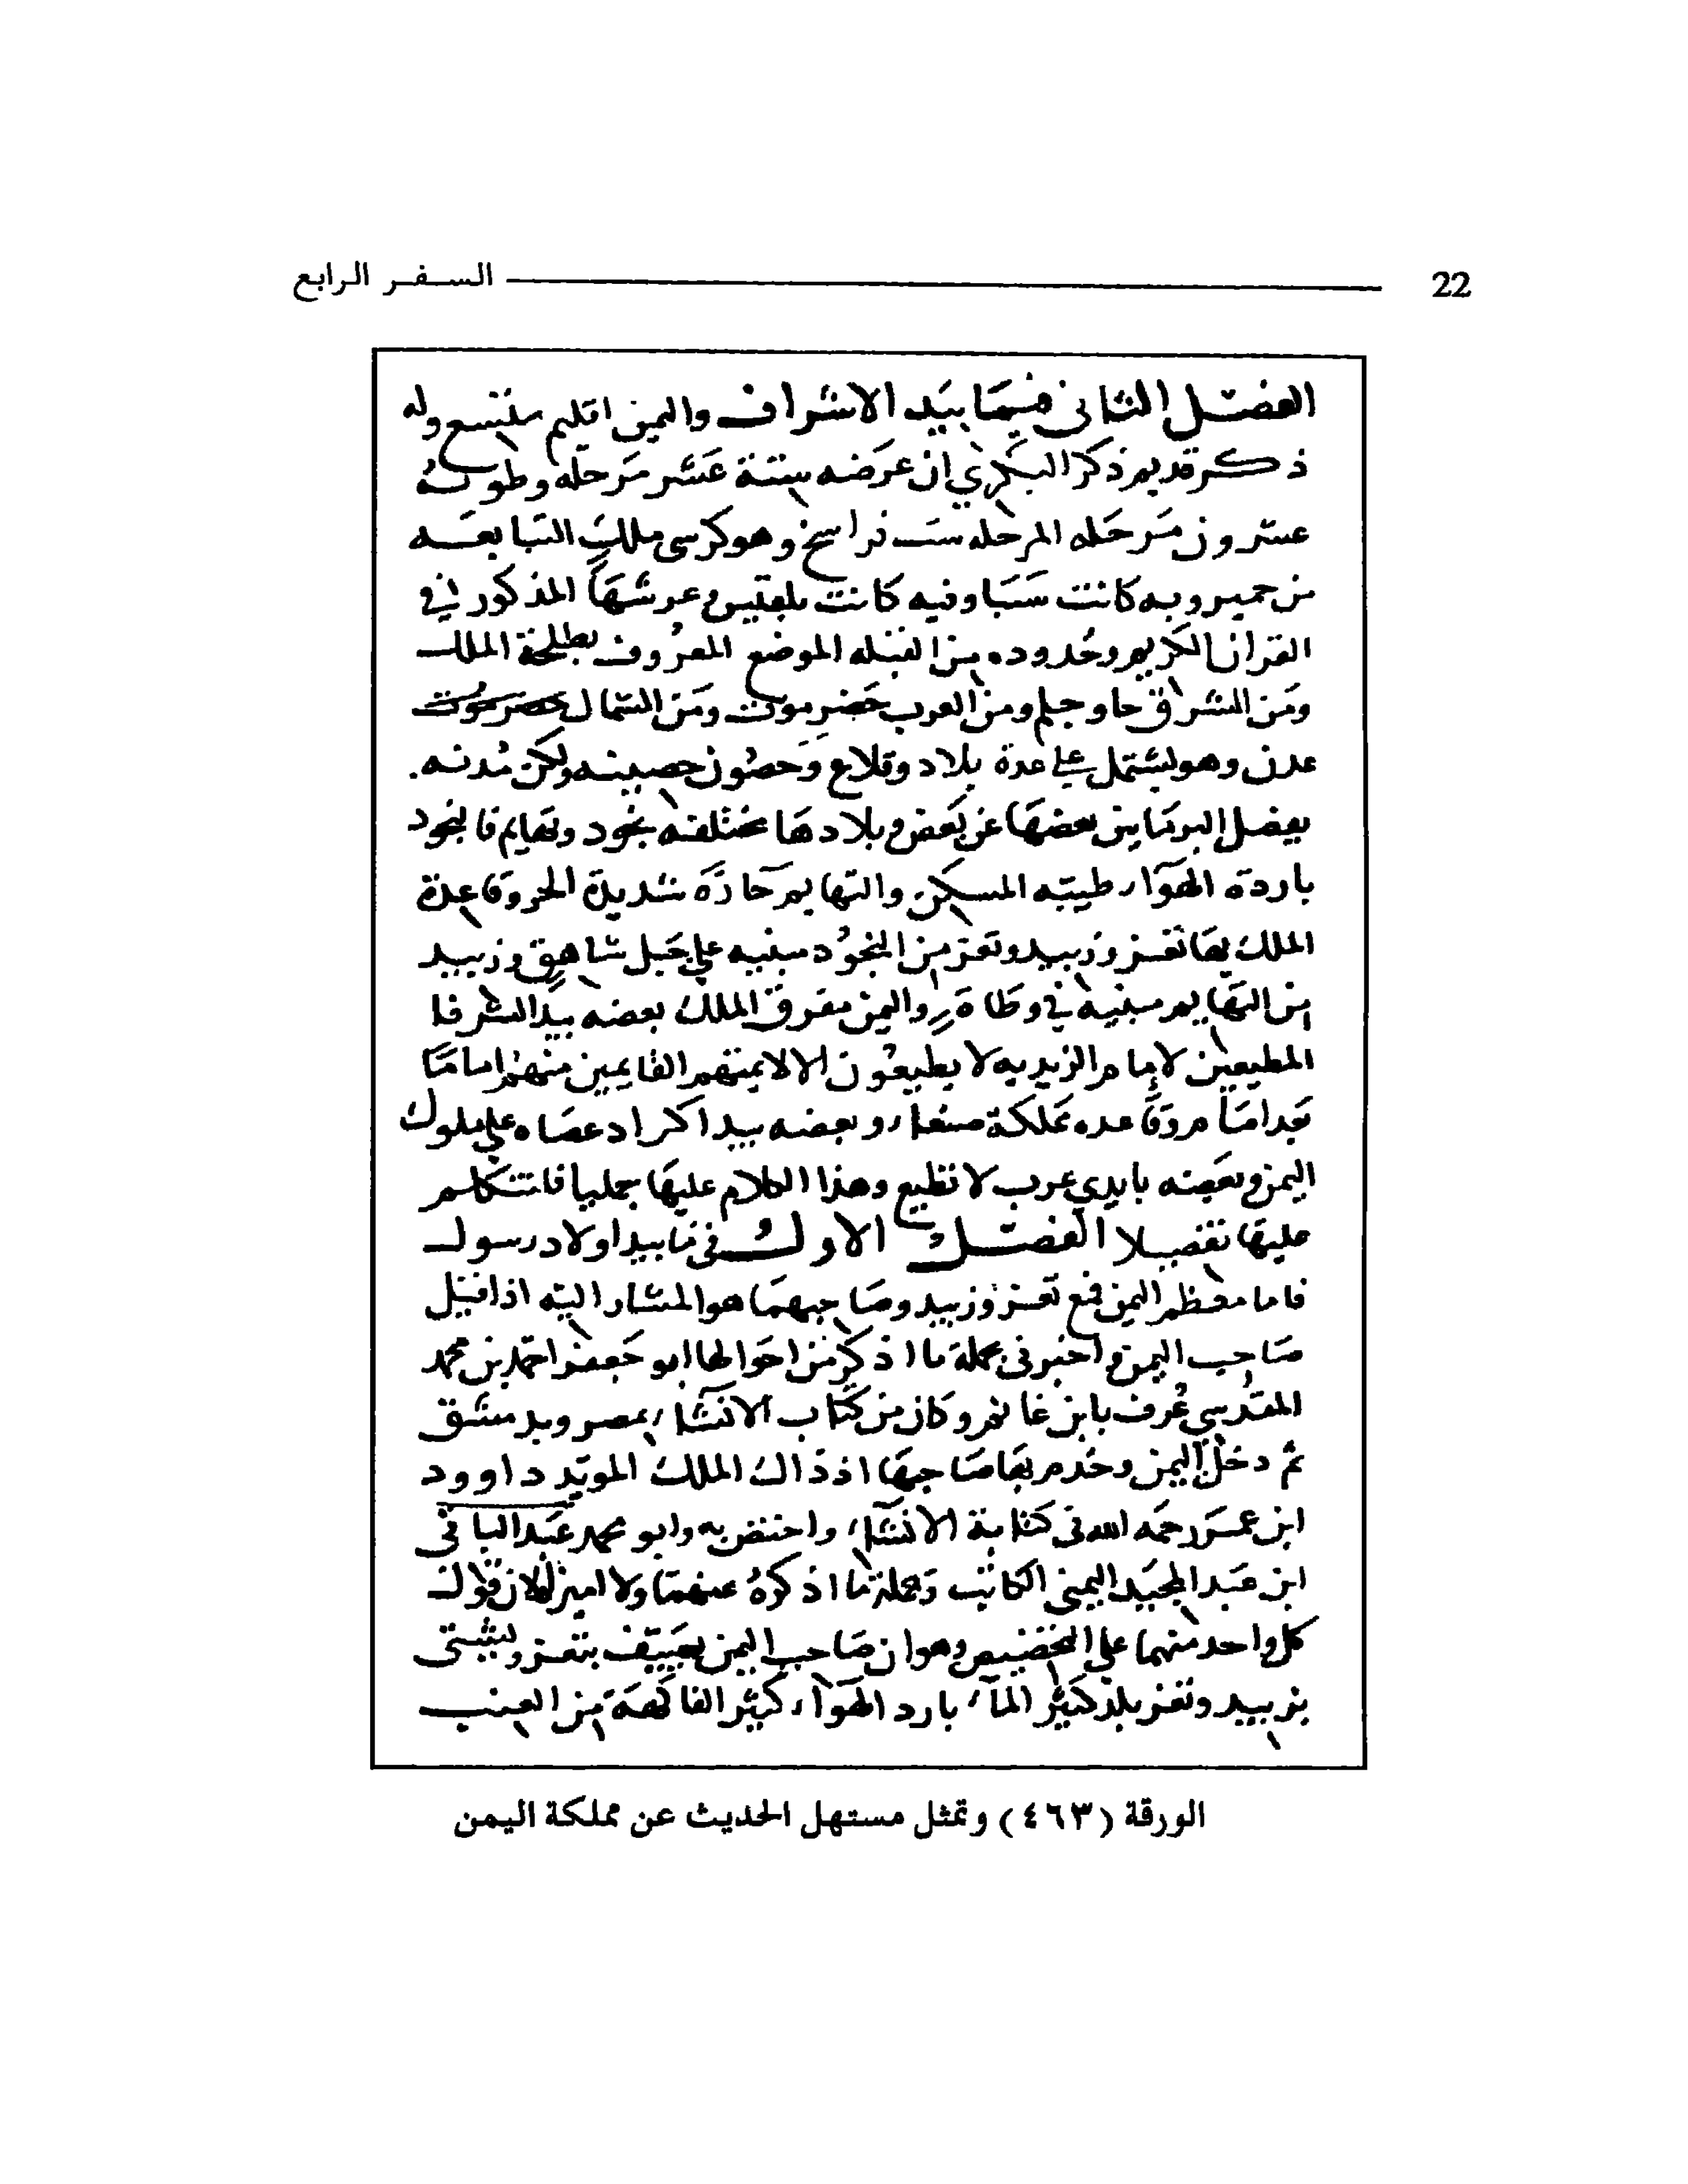 22 السفر الرابع
الفصل الثاني فيما بيد الاشراف واليمن اقليم متسع وله
ذكر قديم ذكر البكري ان عرضه ستة عشر مرحله وطوله
عشرون مرحله المرحله ست فراسخ وهو كرسي ملك التبابعه
من حمير وبه كانت سبا وفيه كانت بلقيس وعرشها المذكور في
القران الكريم وحدوده من القبله الموضع المعروف بطلحة الملك
ومن الشرق حاوجلم ومن الغرب حضرموت ومن الشمال حضرموت
عدن وهو يشتمل على عدة بلاد وقلاع وحصون حصينه ولكن مدنه
يفصل البر ما بين بعضها عن بعض وبلادها مختلفه نجود وتهايم فالنجود
باردة الهوا طيبة المسكن والتهايم حارة شديدة الحر وقاعدة
الملك بها تعز وزبيد وتعز من النجود مبنيه على جبل شاهق وزبيد
من التهايم مبنيه في وطاة واليمن مفرق الملك بعضه بيد الشرفا
المطيعين لامام الزيديه لا يطيعون الا لايمتهم القايمين منهم اماما
بعد امام وقاعده مملكة صنعا وبعضه بيد اكراد عصاه على ملوك
اليمن وبعضه بايدي عرب لا تطيع وهذا الكلام عليها جمليا فلنتكلم
عليها تفصيلا الفصل الاول في ما بيد اولاد رسول
فاما معظم اليمن فمع تعز وزبيد وصاحبهما هو المشار اليه اذا قيل
صاحب اليمن واخبرني بجملة ما اذكر من احوالها ابو جعفر احمد بن محمد
المقدسي عرف بابن غانم وكان من كتاب الانشاء بمصر وبدمشق
ثم دخل اليمن وخدم بها صاحبها اذ ذاك الملك المويد داوود
ابن عمر رحمه الله في كتابة الانشاء واختص به وابو محمد عبد الباقي
ابن عبد المجيد اليمني الكاتب وجملة ما اذكره عنهما ولا اميز الان قول
كل واحد منهما على التخصيص وهو ان صاحب اليمن يصيف بتعز ويشتي
بزبيد وتعز بلد كثير الماء بارد الهواء كثير الفاكهة من العنب
الورقة (٤٦٣) وتمثل مستهل الحديث عن مملكة اليمن